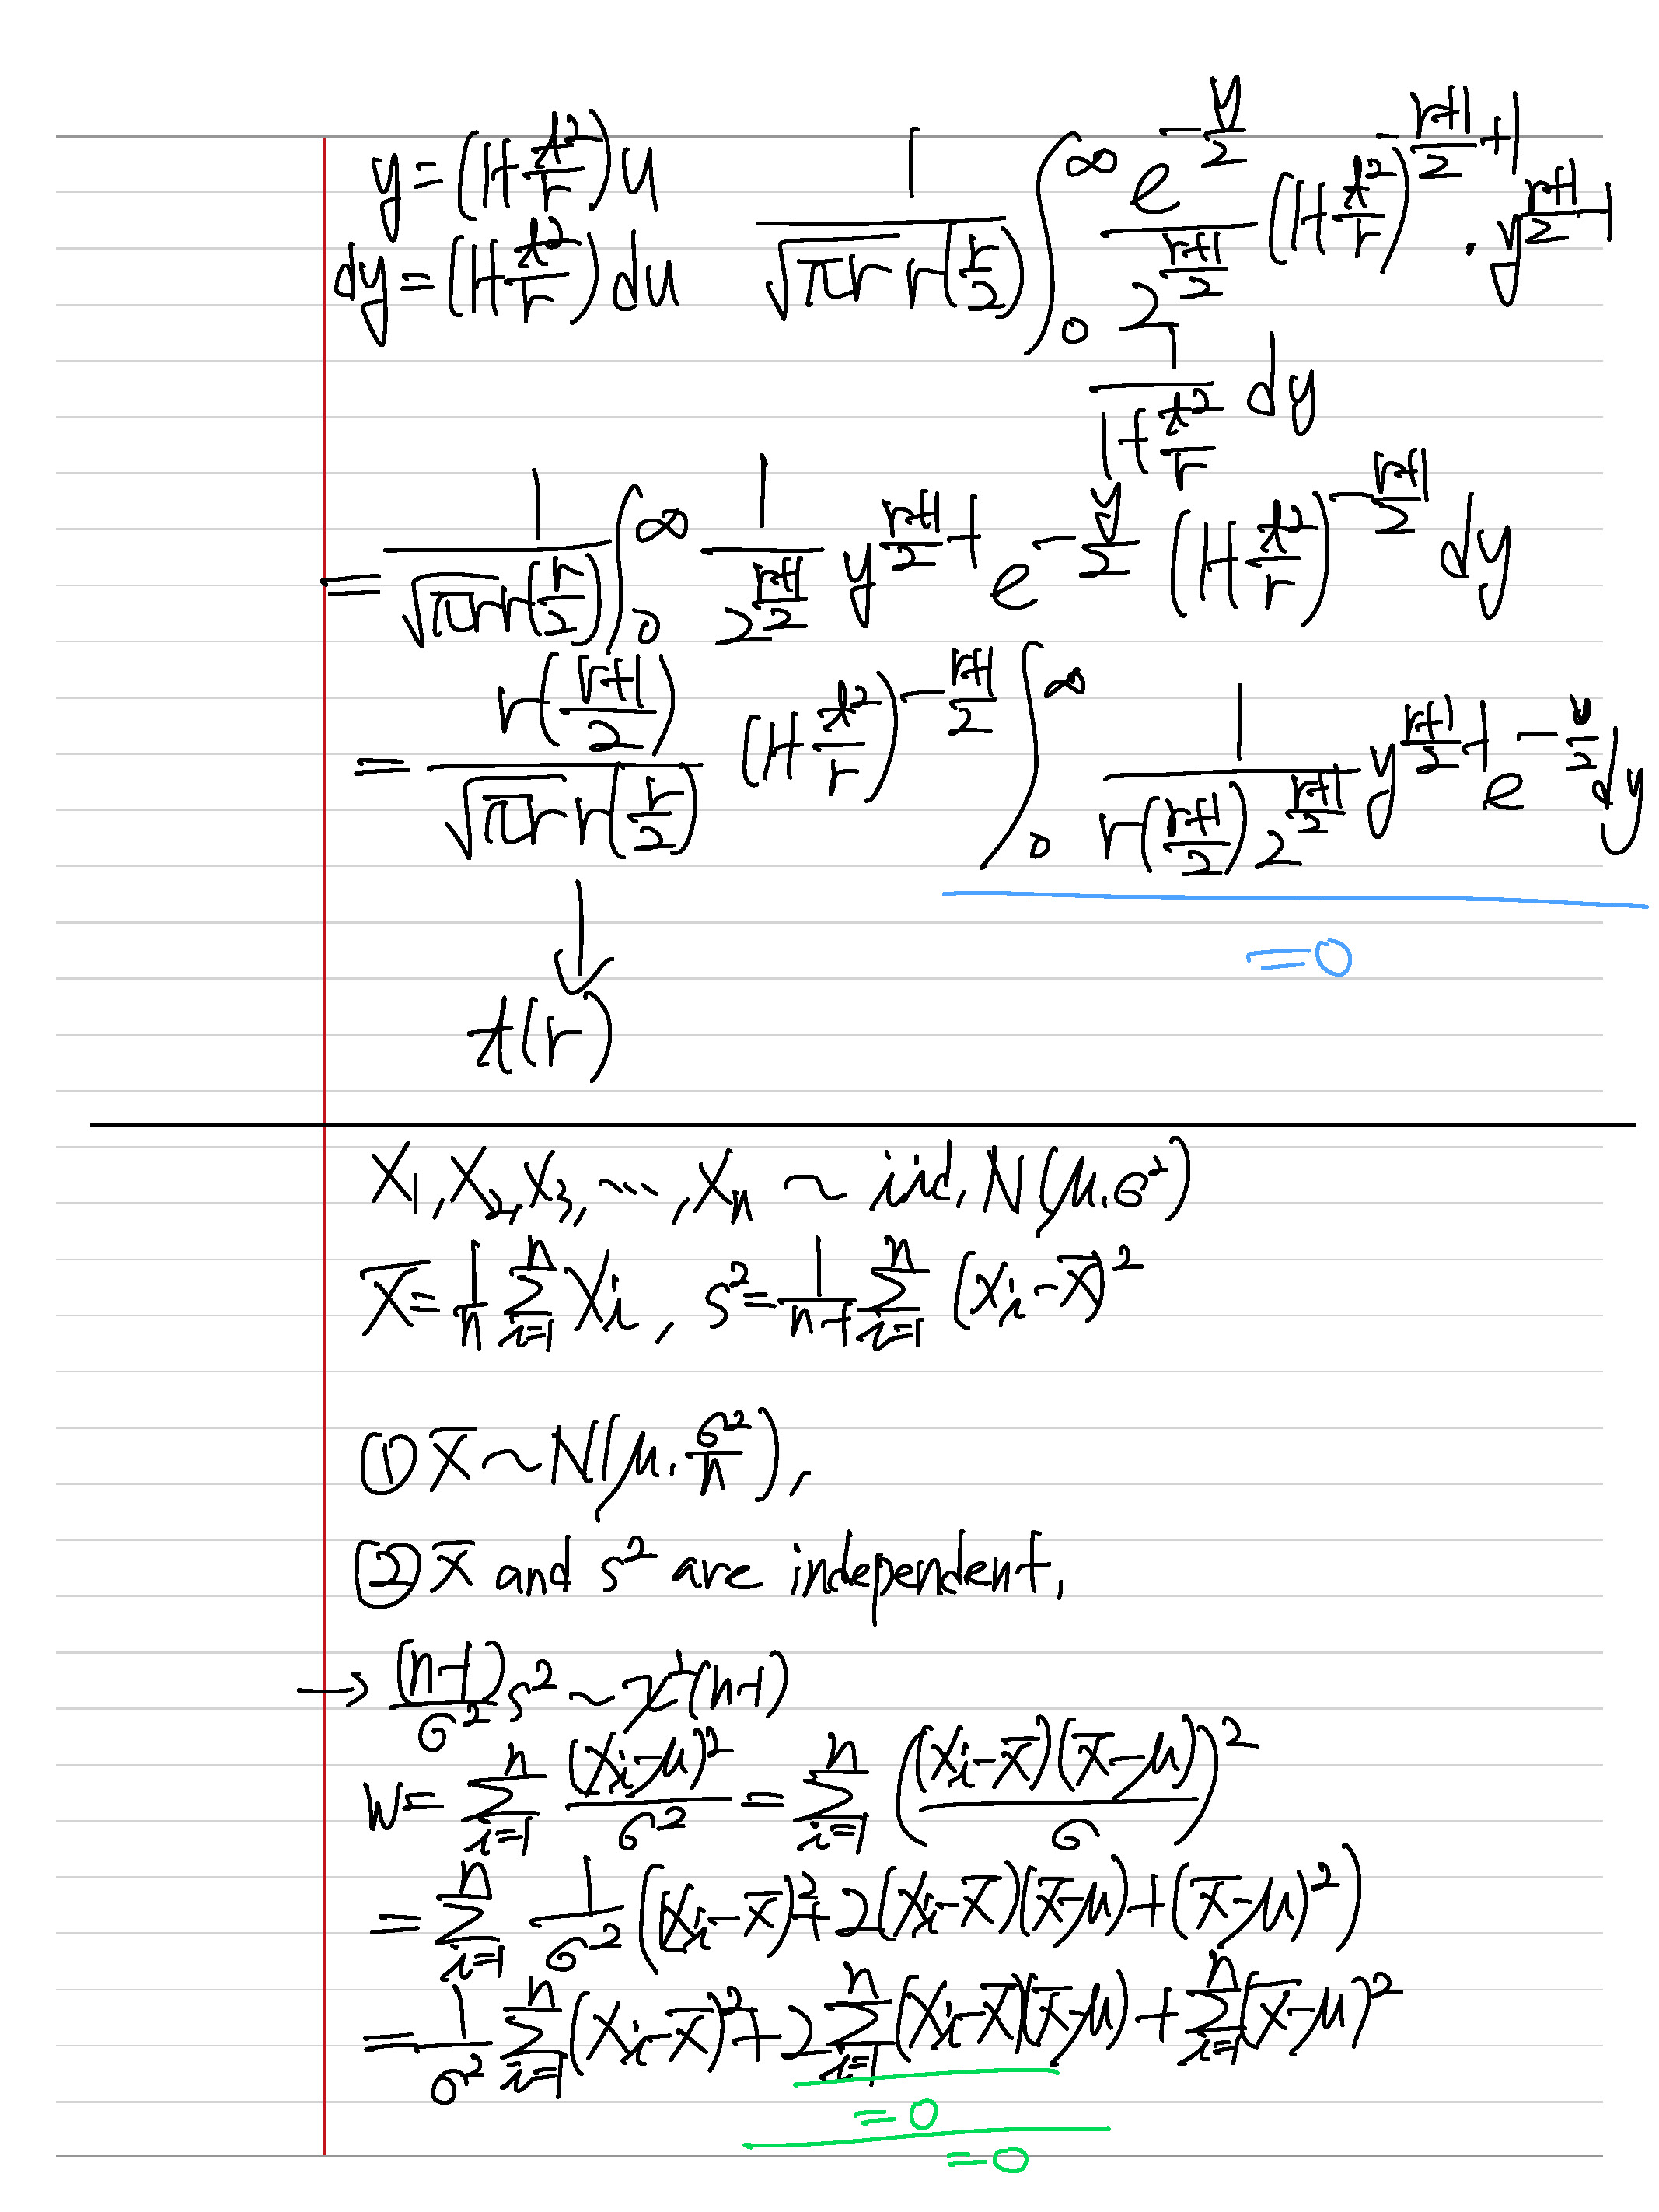 y = (1+t²/r)u   1/(√(πr) Γ(r/2)) ∫₀^∞ e^(-y/2)/2^((r+1)/2) (1+t²/r)^(-(r+1)/2+1) · y^((r+1)/2-1)
dy = (1+t²/r)du   1/(1+t²/r) dy
= 1/(√(πr) Γ(r/2)) ∫₀^∞ 1/2^((r+1)/2) y^((r+1)/2-1) e^(-y/2) (1+t²/r)^(-(r+1)/2) dy
= Γ((r+1)/2)/(√(πr) Γ(r/2)) (1+t²/r)^(-(r+1)/2) ∫₀^∞ 1/(Γ((r+1)/2) 2^((r+1)/2)) y^((r+1)/2-1) e^(-y/2) dy
=0
↓
t(r)
X₁, X₂, X₃, ..., Xₙ ~ iid, N(μ. σ²)
X̄ = 1/n Σ_{i=1}^n Xᵢ, s² = 1/(n-1) Σ_{i=1}^n (xᵢ-x̄)²
① x̄ ~ N(μ. σ²/n),
② x̄ and s² are independent,
→ (n-1)/σ² s² ~ χ²(n-1)
W = Σ_{i=1}^n (Xᵢ-μ)²/σ² = Σ_{i=1}^n ((Xᵢ-x̄)(x̄-μ)/σ)²
= Σ_{i=1}^n 1/σ² ((Xᵢ-x̄)² + 2(Xᵢ-x̄)(x̄-μ) + (x̄-μ)²)
= 1/σ² Σ_{i=1}^n (Xᵢ-x̄)² + 2Σ_{i=1}^n (Xᵢ-x̄)(x̄-μ) + Σ_{i=1}^n (x̄-μ)²
=0
=0